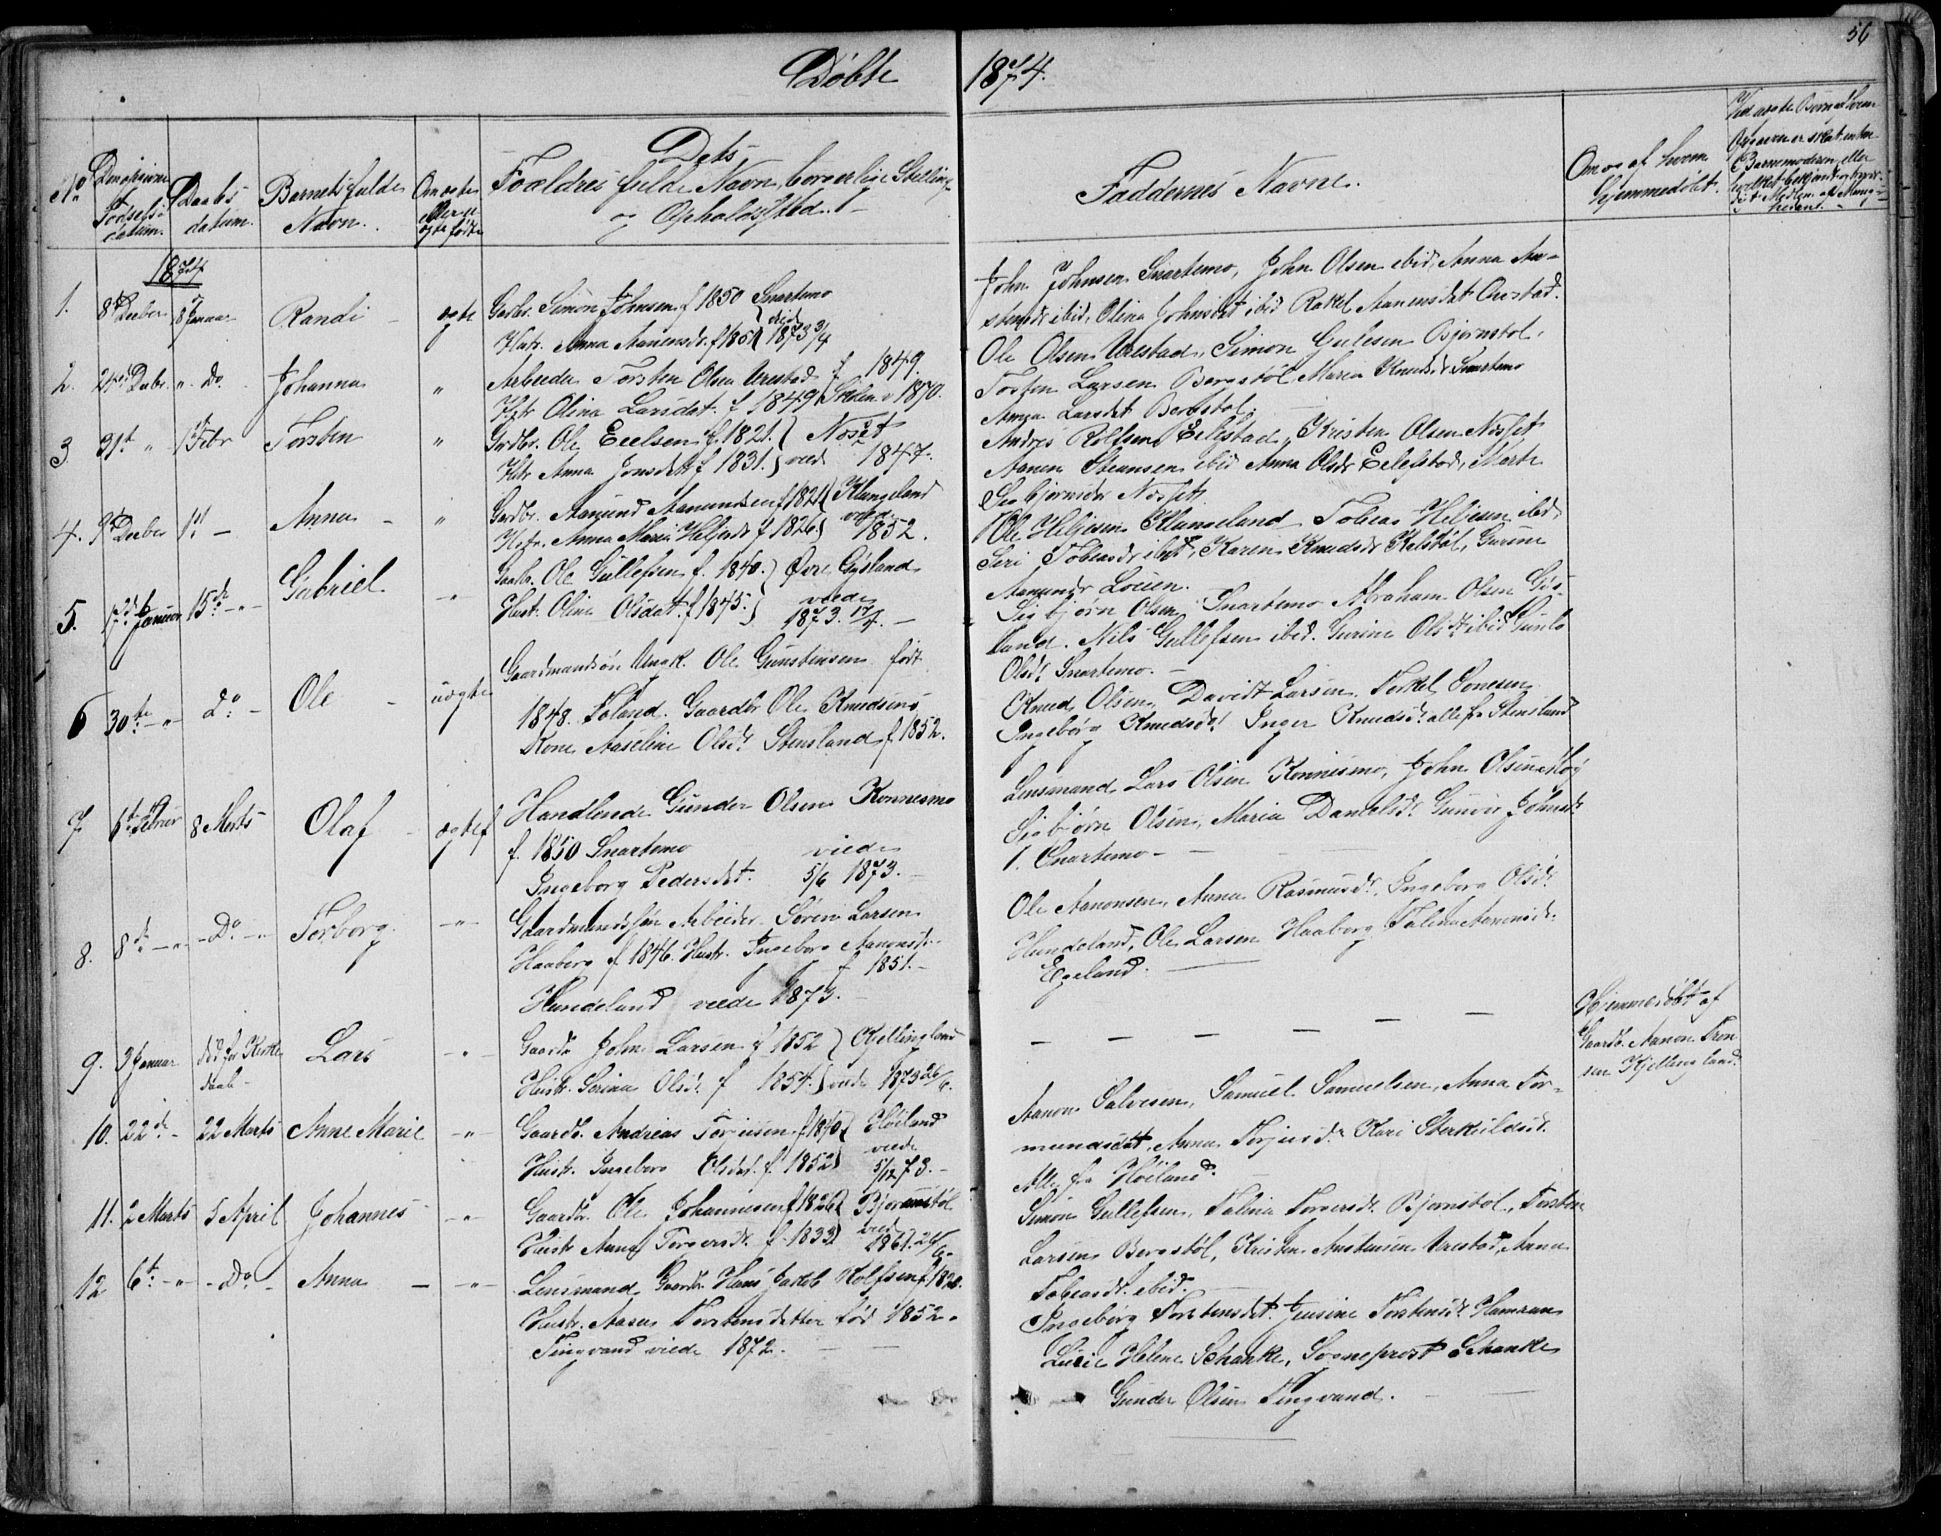 56
Døbte 1874.
No
Den opgivne Fødselsdatum.
Daabsdatum.
Barnets fulde Navn.
Om ægte eller uægte født
Dets Forældres fulde Navn, borgerlige Stilling og Opholdssted.
Faddernes Navne.
Om og af hvem hjemmedøbt.
1874
1. 8de Decber Januar Randi ægte Gaardbr. Simon Johnsen f 1850 Snartemo
Hustr. Anna Aanensdr. f 1850 vied 1873
John Johnsen Snartemo, John Olsen ibid, Anna
ibid, Olina Johnsdat ibid Rakel Aanensdat
2. Decbr. " Do Johanna " Arbeider Torsten Olsen Urestad f 1849.
Hstr Olina Larsdat. f 1849 1870.
Ole Olsen Urestad, Simon Gulesen Bjørnstøl.
Torsten Larsen Bergstøl Maria Knudsdr Snartemo
Larsdat Bergstøl.
3 31te " 1 Febr Torsten " Grdbr. Ole Eielsen f. 1821. Noset
Hstr Anna Jonsdatt f 1831. vied 1847.
Andreas Rolfsen Eilestad, Kristen Olsen Nosset
Aanen ibid Anna Olsdr Eilefstad, Merte
Sigbjørnsdr Nosset
4. 9de Decber 1 " - Anna - " Gardbr. Aamund Aamundsen f 1821 Klungeland
Hstr. Anna Maria Heljesdr f 1826 viede 1852.
Ole Heljesen Klungeland Tobias Heljesen ibid,
Siri Tobiasdr ibid, Karen Knudsdr Kelstøl, Gurine
Aamundsdr
5. Januar 15de - " - Gabriel - " - Gaardbr. Ole Gullefsen f. 1840. Øvre Gysland
Hustr. Olina Olsdat. f 1845. viede 1873. 17/7. -
Sigbjørn Olsen Snartemo Abraham Olsen Gys-
land. Nils Gullefsen ibid. Gurine Olsdt ibid Gunlo
Olsdt Snartemo. -
6 30te - " - Do - Ole - uægte Gaardmandsøn Ungk. Ole Gunstensen født
1848. Foland. Gaardbr Ole Knudsens
Kone Aaseline Olsdr Stensland f 1852.
Knud Olsen, Davidt Larsen, Terkel Tonesen
Ingebørg Knudsdt Inger Knudsdt alle fr Stensland
7. 6te Februar 8 Marts Olaf - ægtef Handlende Gunder Olsen Konnesmo
f. 1850 Snartemo viede
Ingeborg Pedersdat. 5/6 1873.
Lensmand Lars Olsen Konnismo, John Olsen Moy
Sigbjørn Olsen, Maria Danielsdr. Gunvor Johnsdr
f. Snartemo - -
8. 8de - " - - Do - " - Torborg - " - Gaardmandsøn Arbeider Søren Larsen
Haaberg f 1846. Hustr. Ingeborg Aanonsdr.
f 1851. -
Hundeland viede 1873. -
Ole Aanonsen, Anna Rasmusdr, Ingeborg Olsdr
Hundeland, Ole Larsen Haaberg Talina Aanonsdr.
Egeland.
9. 3 Januar død før Kirke
daab - Lars - " - Gaardbr John Larsen f 1852 Kjellingland
Hustr. Serina Olsdr f 1854. viede 1873 26/6.
- - - - - -
Hjemmedøbt af
Gaardb. Aanon Tron
sen Kjellingland.
10. 22de - 22 Marts Anne Marie - " - Gaardb. Andreas Torjusen f 1840 Høiland
Hustr. Ingeborg Olsdat. f. 1852 viede 5/12 73. -
Aanon Salvesen, Samuel Samuelsen, Anna Tor-
mundsdat, Anna Torjusdr Kari Sterkeildsdt.
Alle fra Høiland.
11. 2 Marts 5 April Johannes - " Gaardbr. Ole Johannesen f 1826 Bjørnstøl
Hustr Anna Torgersdr f. 1833 vied 1861.
Simon Gullefsen, Talina Torgersdr Bjørnstøl, Torsten
Larsen Bergstøl, Kristen Anstensen Urestad, Anna
Tobiasdt. ibid. -
12 6te - " - - Do - Anna - - " - Lensmand, Gaardbr. Hans Jakob Rolfsen f 18
Hustr. Aasne Torstensdatter fød 1852.
Tingvand viede 1872. - -
Ingebørg Torstensdat. Jensine Torstensdt. Hamran
Lucie Helene Schanke, Sogneprest Schanke
Gunder Olsen Tingvand. -